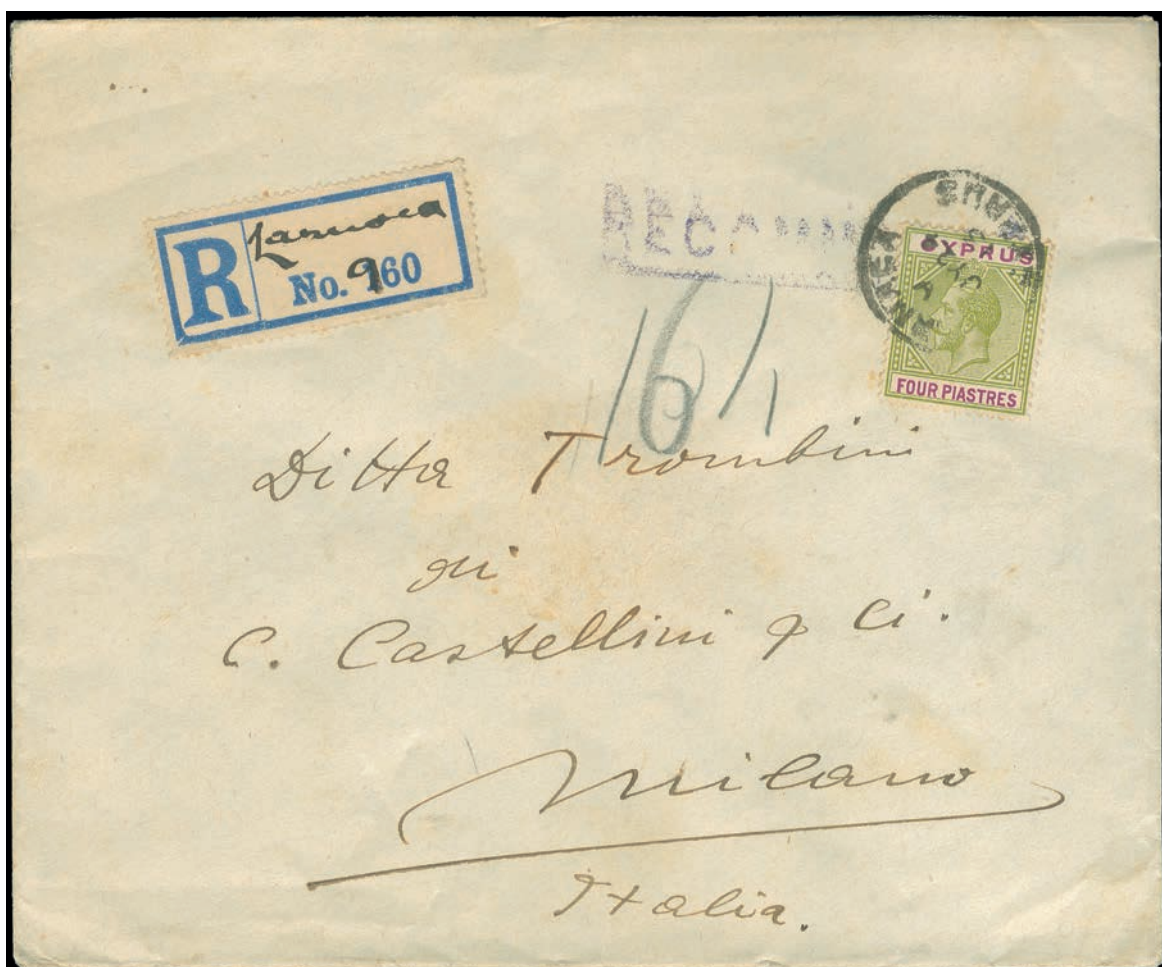 R
Larnaca
No. 960
CYPRUS
FOUR PIASTRES
Ditta Trombini
di
C. Castellini & Ci.
Milano
Italia.